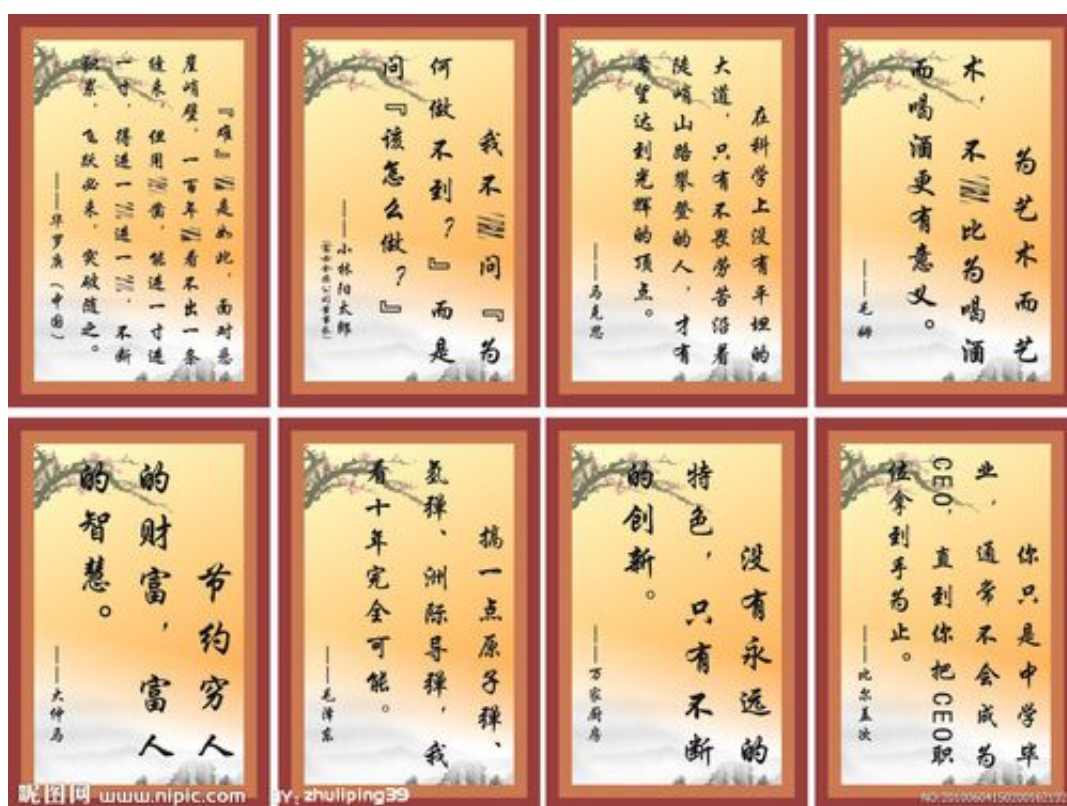 『难』是如此，面对悬
崖峭壁，一百年看不出一条
缝来，但用凿，能进一寸进
一寸，得进一进一，不断
积累，飞跃必来，突破随之。
——华罗庚（中国）
我不问『为
何做不到？』而是
问『该怎么做？』
——小林阳太郎
在科学上没有平坦的
大道，只有不畏劳苦沿着
陡峭山路攀登的人，才有
希望达到光辉的顶点。
——马克思
为艺术而艺
术，不比为喝酒
而喝酒更有意义。
——毛姆
节约穷人
的财富，富人
的智慧。
——大仲马
搞一点原子弹、
氢弹、洲际导弹，我
看十年完全可能。
——毛泽东
没有永远的
特色，只有不断
的创新。
——万家厨房
你只是中学毕
业，通常不会成为
CEO，直到你把CEO职
位拿到手为止。
——比尔盖茨
昵图网 www.nipic.com BY：zhuliping39